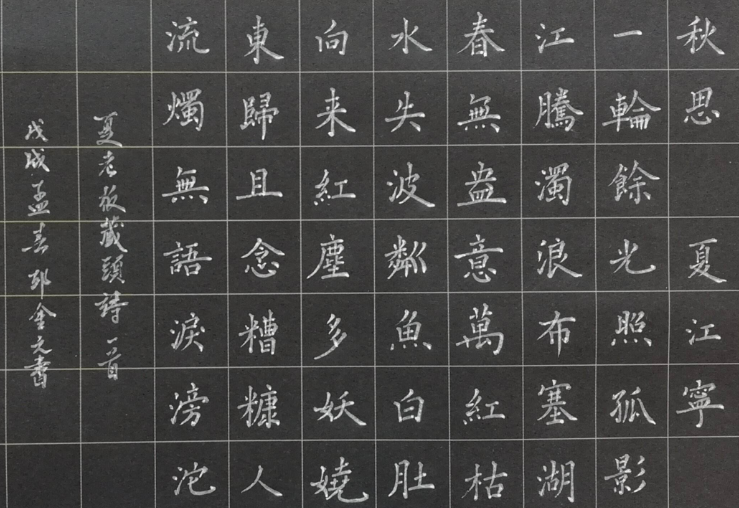 秋思 夏江寧
一輪餘光照孤影
江騰濁浪布塞湖
春無盎意萬紅枯
水失波粼魚白肚
向来紅塵多妖嬈
東歸且念糟糠人
流燭無語淚滂沱
夏老板藏頭詩一首
戊戌孟春邱金文書